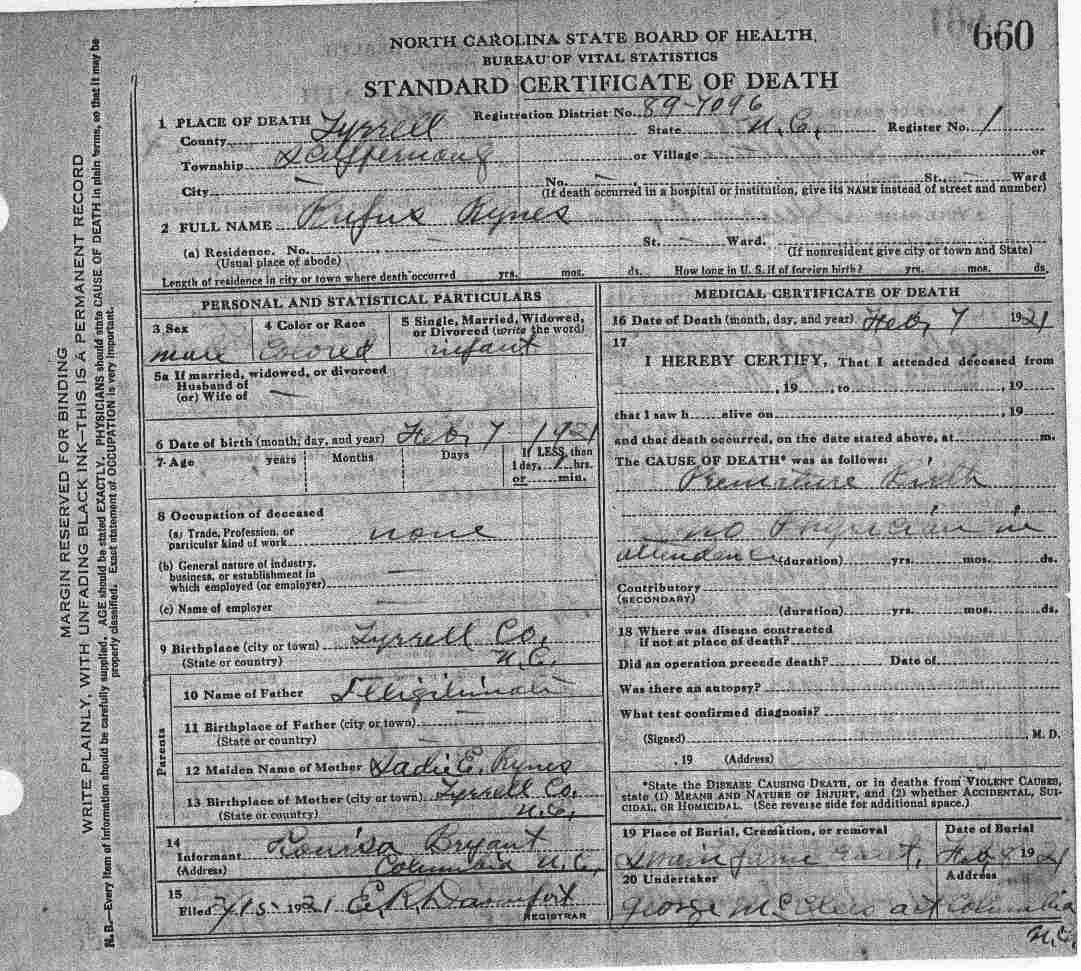 660
NORTH CAROLINA STATE BOARD OF HEALTH
BUREAU OF VITAL STATISTICS
STANDARD CERTIFICATE OF DEATH
1 PLACE OF DEATH Registration District No. 89-7096
County Tyrrell State N.C. Register No. 1
Township Scuppernong or Village or
City No. St., Ward
(If death occurred in a hospital or institution, give its NAME instead of street and number)
2 FULL NAME Rufus Rynes
(a) Residence. No. St. Ward.
(Usual place of abode) (If nonresident give city or town and State)
Length of residence in city or town where death occurred yrs. mos. ds. How long in U. S. if of foreign birth? yrs. mos. ds.
PERSONAL AND STATISTICAL PARTICULARS
3 Sex male
4 Color or Race Colored
5 Single, Married, Widowed, or Divorced (write the word) infant
5a If married, widowed, or divorced
Husband of —
(or) Wife of
6 Date of birth (month, day, and year) Feby 7 1921
7 Age years Months Days If LESS than
1 day, 1 hrs.
or min.
8 Occupation of deceased
(a) Trade, Profession, or
particular kind of work none
(b) General nature of industry,
business, or establishment in
which employed (or employer) —
(c) Name of employer —
9 Birthplace (city or town) Tyrrell Co,
(State or country) N.C.
Parents
10 Name of Father Illigitimati
11 Birthplace of Father (city or town)
(State or country)
12 Maiden Name of Mother Sadie E. Rynes
13 Birthplace of Mother (city or town) Tyrrell Co.
(State or country) N.C.
14
Informant Louisa Bryant
(Address) Columbia N.C.
15
Filed 2/15 1921 E. R. Davenport
REGISTRAR
MEDICAL CERTIFICATE OF DEATH
16 Date of Death (month, day, and year) Feby 7 1921
17
I HEREBY CERTIFY, That I attended deceased from
, 19 , to , 19
that I saw h alive on , 19
and that death occurred, on the date stated above, at m.
The CAUSE OF DEATH* was as follows:
Premature Birth
no Physician in
attendance (duration) yrs. mos. ds.
Contributory
(SECONDARY)
(duration) yrs. mos. ds.
18 Where was disease contracted
if not at place of death?
Did an operation precede death? Date of
Was there an autopsy?
What test confirmed diagnosis?
(Signed) , M. D.
, 19 (Address)
*State the DISEASE CAUSING DEATH, or in deaths from VIOLENT CAUSES,
state (1) MEANS AND NATURE OF INJURY, and (2) whether ACCIDENTAL, SUI-
CIDAL, OR HOMICIDAL. (See reverse side for additional space.)
19 Place of Burial, Cremation, or removal Date of Burial
Feby 8 1921
20 Undertaker Address
George Columbia
N.C.
MARGIN RESERVED FOR BINDING
WRITE PLAINLY, WITH UNFADING BLACK INK—THIS IS A PERMANENT RECORD
N. B.—Every item of information should be carefully supplied. AGE should be stated EXACTLY. PHYSICIANS should state CAUSE OF DEATH in plain terms, so that it may be
properly classified. Exact statement of OCCUPATION is very important.